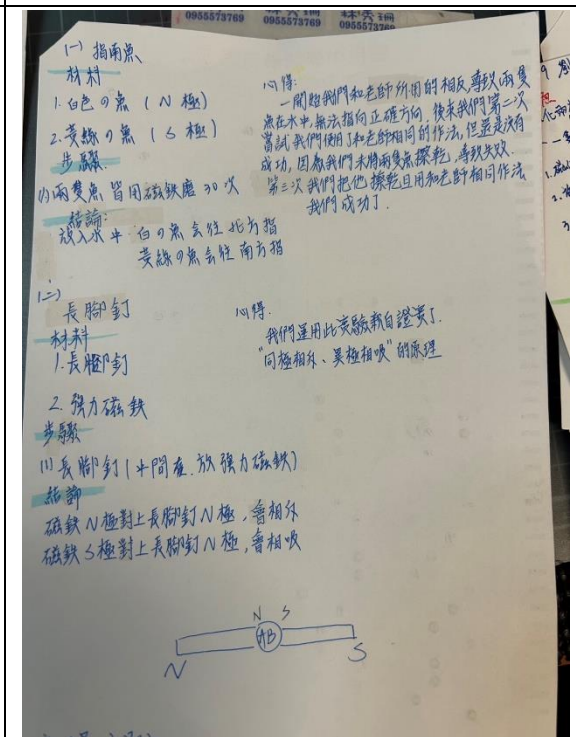 0955573769
0955573769
0955573769
(一) 指南魚
材料
1. 白色の魚 (N 極)
2. 黃綠の魚 (S 極)
步驟
(1) 兩隻魚皆用磁鉄磨 30 次
結論:
放入水中 白の魚会往北方指
黃綠の魚会往南方指
心得:
一開始我們和老師所用的相反,導致兩隻
魚在水中,無法指向正確方向. 後來我們第二次
嘗試我們使用了和老師相同的作法,但還是沒有
成功,因為我們未將兩隻魚擦乾,導致失敗.
第三次我們把他擦乾且用和老師相同作法
我們成功了.
(二)
長腳釘
材料
1. 長腳釘
2. 強力磁鉄
步驟
(1) 長腳釘(中間放強力磁鉄)
結論
磁鉄N極對上長腳釘N極,會相斥
磁鉄S極對上長腳釘N極,會相吸
心得.
我們運用此實驗親自證實了.
"同極相斥、異極相吸"的原理
N S
AB
N S